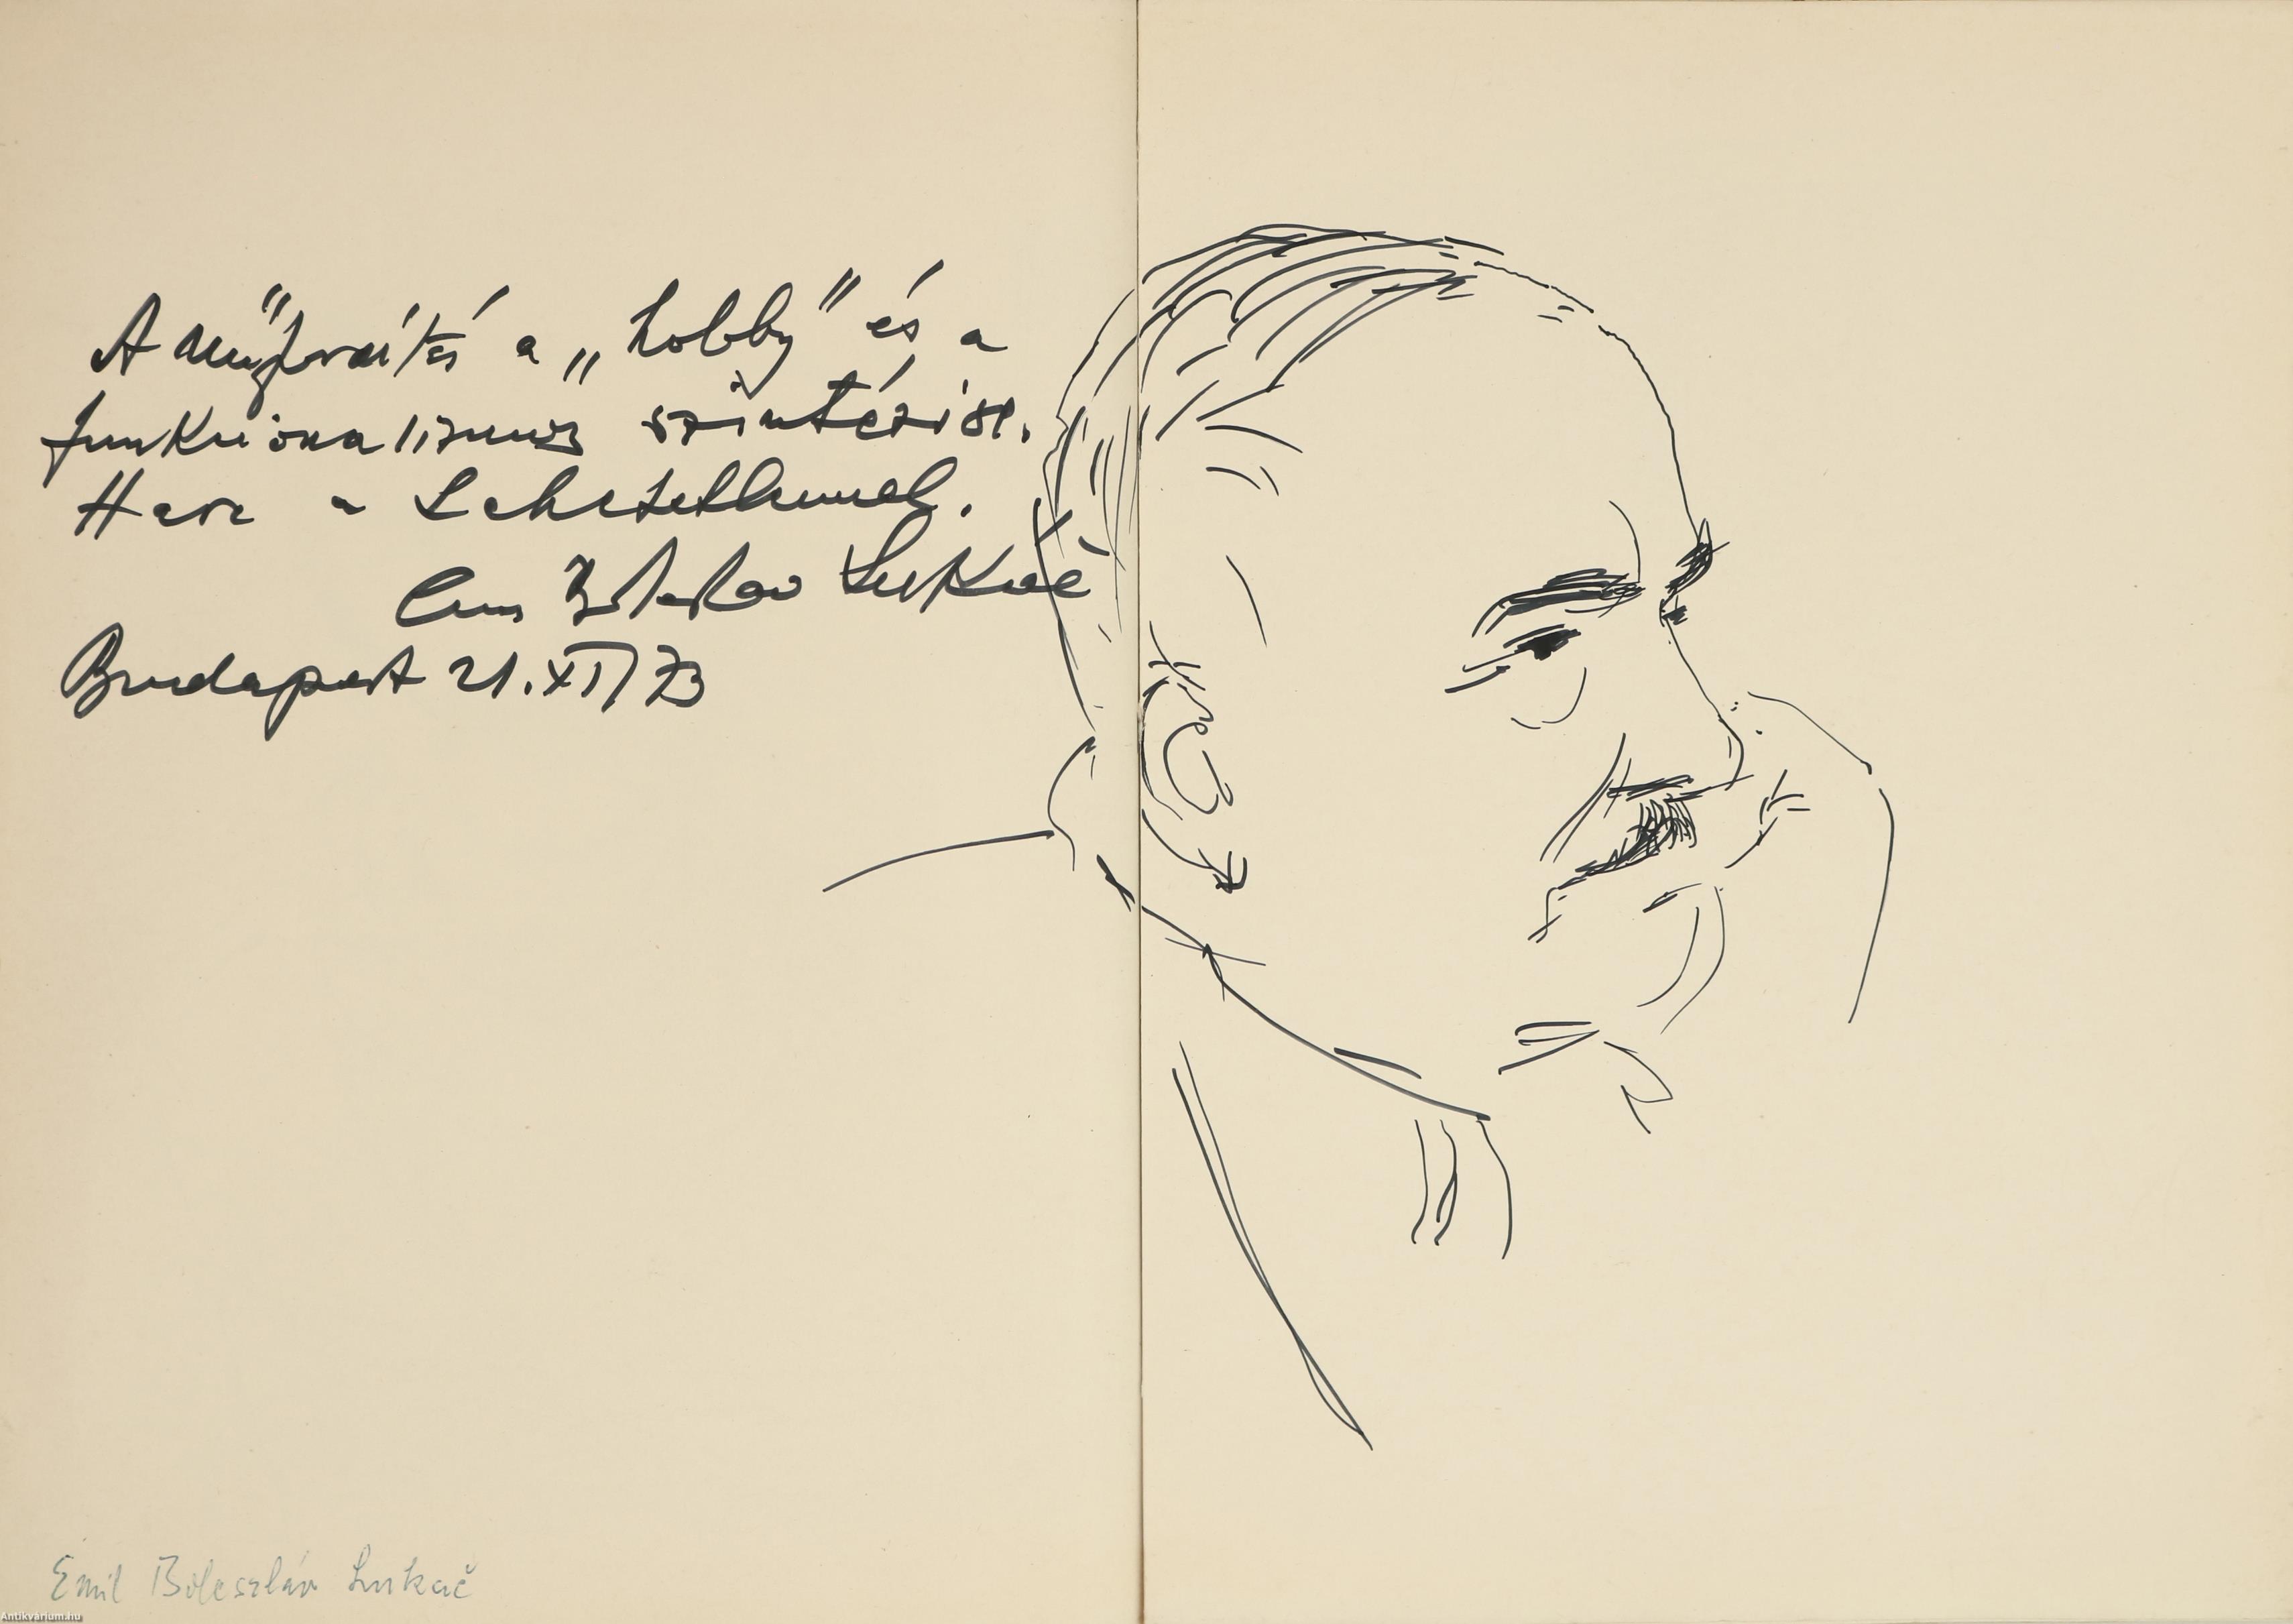 A műfordítás a „hobby” és a
funkcionalizmus szintézise.
Harc a Lehetetlennel.
Emil Boleslav Lukáč
Budapest 21.XI/73
Emil Boleszláv Lukač
Antikvárium.hu